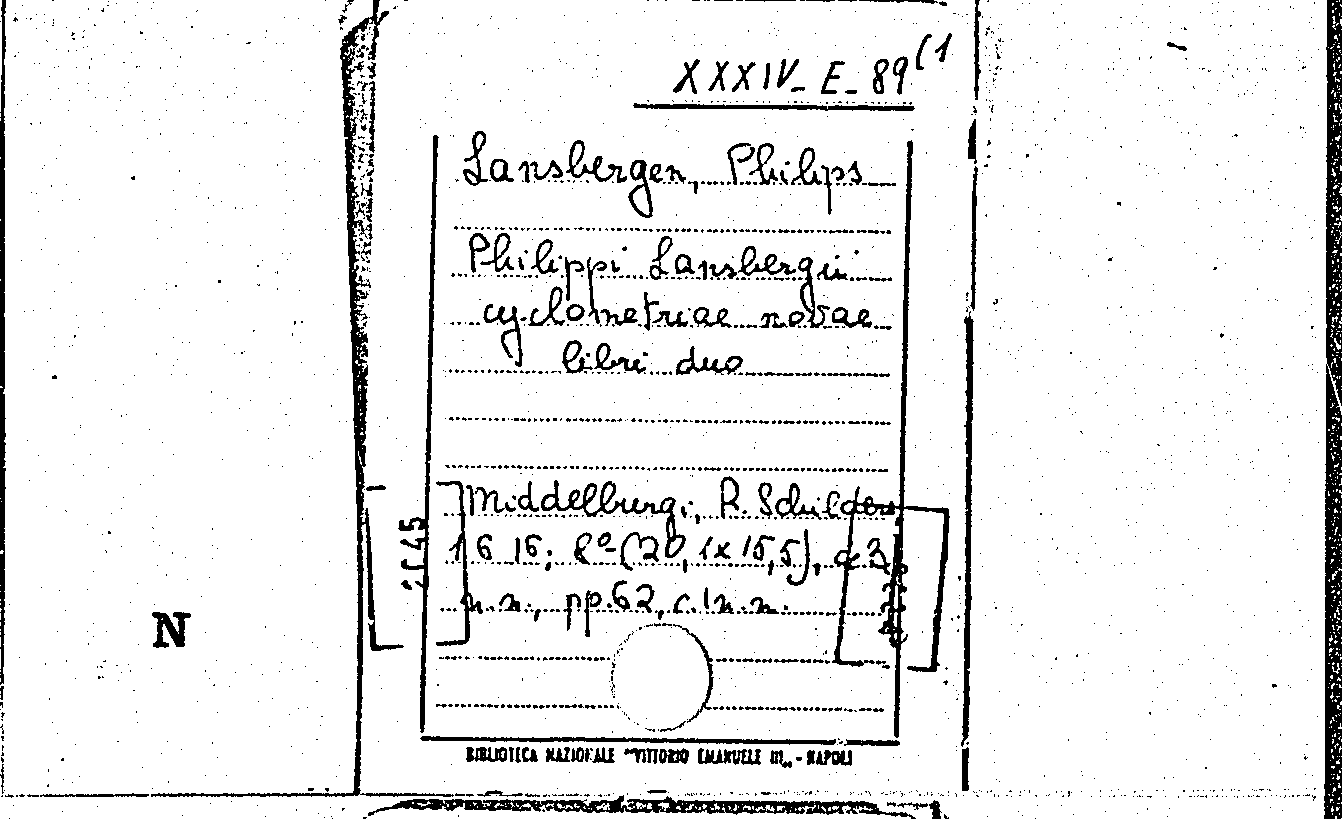 XXXIV-E-89(1
Lansbergen, Philips
Philippi Lansbergii
cyclometriae novae
libri duo
Middelburgi, R. Schilders
1616; 8º-(20,1x15,5), c.3
n.n., pp.62, c.1n.n.
N
BIBLIOTECA NAZIONALE "VITTORIO EMANUELE III" - NAPOLI